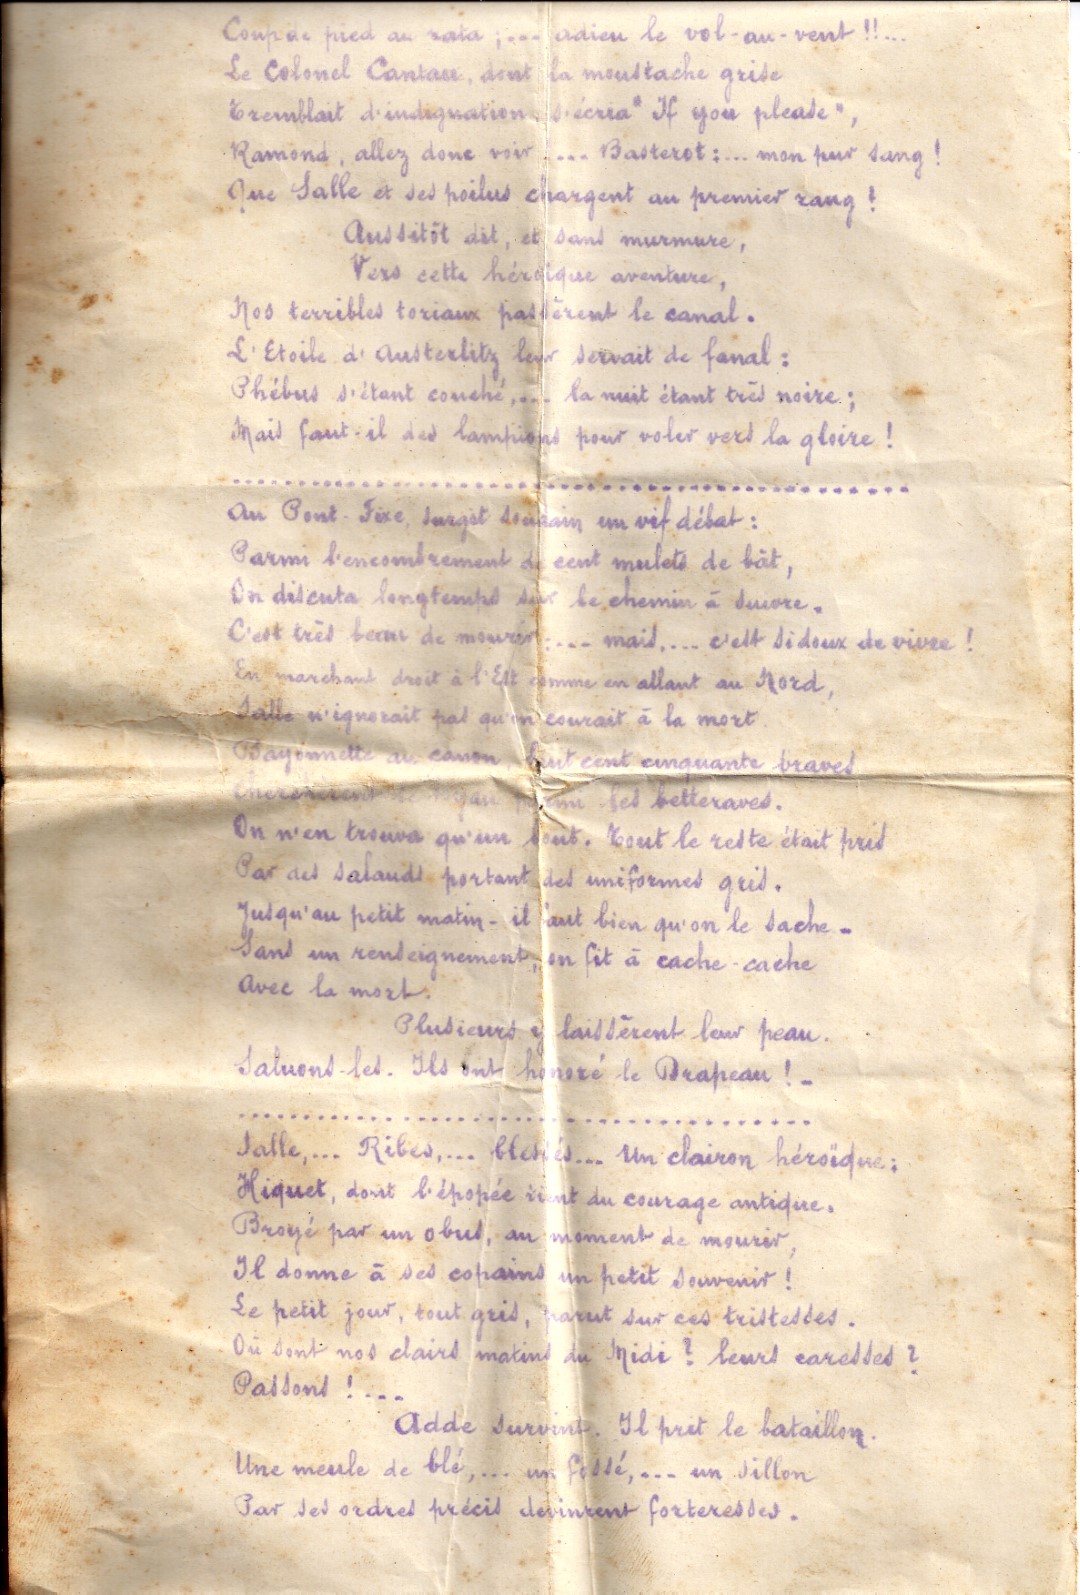 Coup de pied au rata ;... adieu le vol-au-vent !!...
Le Colonel Cantau, dont la moustache grise
Tremblait d'indignation, s'écria "If you please",
Ramond, allez donc voir .... Basterot :... mon pur sang !
Que Salle et ses poilus chargent au premier rang !
Aussitôt dit, et sans murmure,
Vers cette héroïque aventure,
Nos terribles toriaux passèrent le canal.
L'Etoile d'Austerlitz leur servait de fanal :
Phébus s'étant couché,... la nuit étant très noire ;
Mais faut-il des lampions pour voler vers la gloire !
Au Pont-Fixe, surgit soudain un vif débat :
Parmi l'encombrement de cent mulets de bât,
On discuta longtemps sur le chemin à suivre.
C'est très beau de mourir :... mais,... c'est si doux de vivre !
En marchant droit à l'Est comme en allant au Nord,
Salle n'ignorait pas qu'on courait à la mort.
Bayonnette au canon, huit cent cinquante braves
Cherchèrent parmi les betteraves.
On n'en trouva qu'un bout. Tout le reste était pris
Par des salauds portant des uniformes gris.
Jusqu'au petit matin - il faut bien qu'on le sache -
Sans un renseignement, on fit à cache-cache
Avec la mort.
Plusieurs y laissèrent leur peau.
Saluons-les. Ils ont honoré le Drapeau ! -
Salle,... Ribes,... blessés... Un clairon héroïque :
Hiquet, dont l'épopée tient du courage antique.
Broyé par un obus, au moment de mourir,
Il donne à ses copains un petit souvenir !
Le petit jour, tout gris, parut sur ces tristesses.
Où sont nos clairs matins du Midi ? leurs caresses ?
Passons !...
Adde survint. Il prit le bataillon.
Une meule de blé,... un fossé,... un sillon
Par ses ordres précis devinrent forteresses.